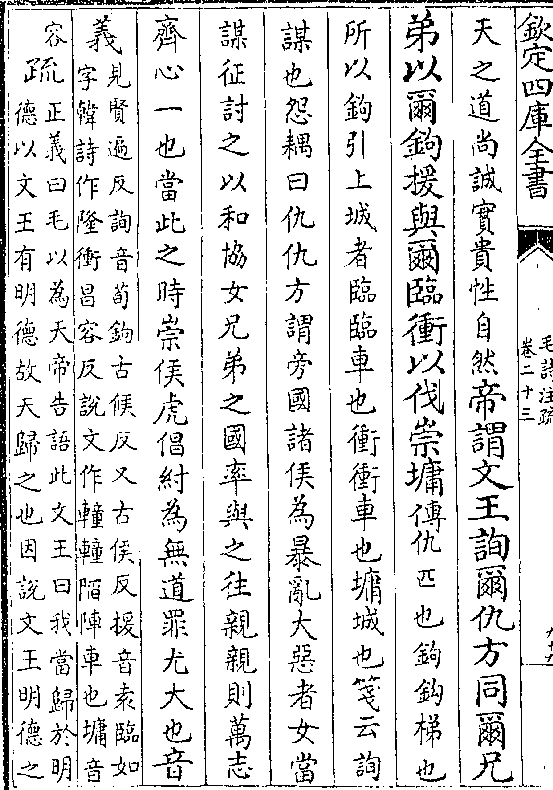 欽定四庫全書
毛詩注疏
卷二十三
天之道尚誠實貴性自然帝謂文王詢爾仇方同爾兄
弟以爾鉤援與爾臨衝以伐崇墉傳仇匹也鉤鉤梯也
所以鉤引上城者臨臨車也衝衝車也墉城也箋云詢
謀也怨耦曰仇仇方謂旁國諸侯為暴亂大惡者女當
謀征討之以和協女兄弟之國率與之往親親則萬志
齊心一也當此之時崇侯虎倡紂為無道罪尤大也音
義見賢遍反詢音荀鉤古侯反又古侯反援音袁臨如
字韓詩作隆衝昌容反說文作䡴䡴陷陣車也墉音
容疏正義曰毛以為天帝告語此文王曰我當歸於明
德以文王有明德故天歸之也因說文王明德之